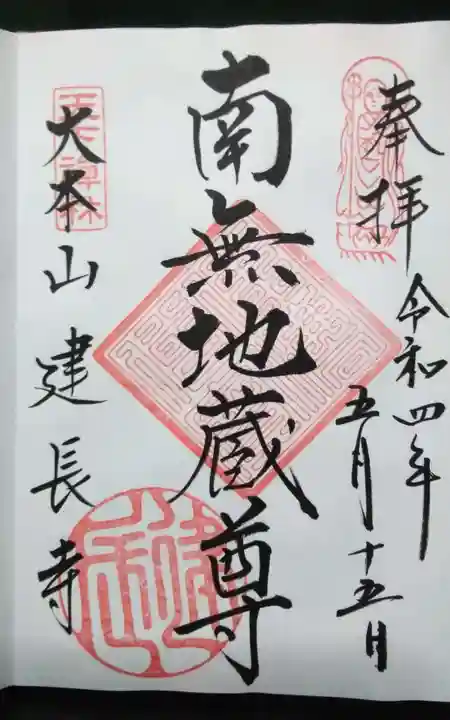 奉拝
令和四年
五月十五日
南無地蔵尊
大本山建長寺
天下禅林